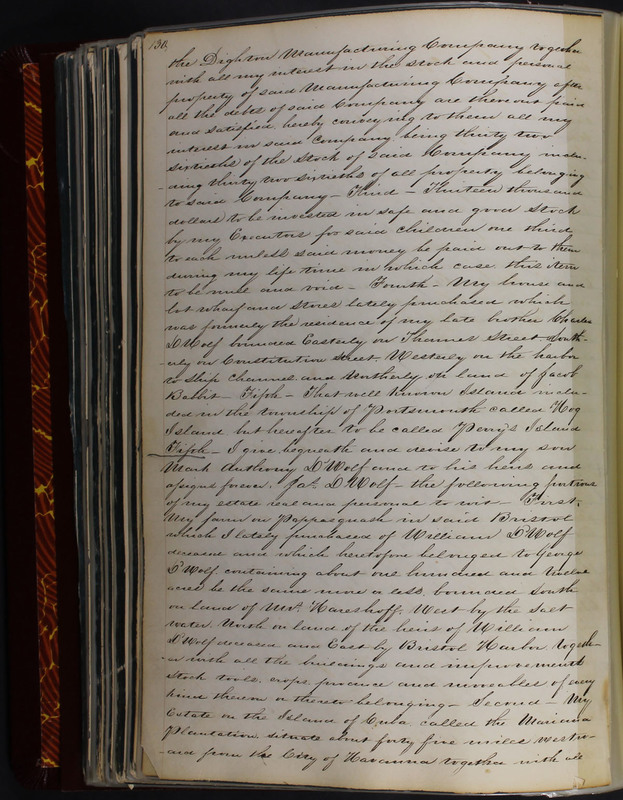 130.
the Dighton Manufacturing Company together
with all my interest in the stock and personal
property of said Manufacturing Company after
all the debts of said Company are thereout paid
and satisfied, hereby conveying to them all my
interest in said Company being thirty two
sixtieths of the Stock of said Company inclu-
-ding thirty two sixtieths of all property belonging
to said Company – Third – Thirteen thousand
dollars to be invested in safe and good Stock
by my Executors for said children one third
to each unless said money be paid out to them
during my life time in which case this item
to be null and void – Fourth – My house and
lot wharf and stores lately purchased which
was formerly the residence of my late brother Charles
D'Wolf bounded Easterly on Thames Street South-
-erly on Constitution Street, Westerly on the harbor
to Ship Channel and Northerly on land of Jacob
Babbit – Fifth – That well known Island inclu-
ded in the township of Portsmouth called Hog
Island but hereafter to be called Perry's Island
Fifth – I give, bequeath and devise to my son
Mark Anthony D'Wolf and to his heirs and
assigns forever, Jas. D'Wolf – the following portions
of my estate real and personal to wit – First,
My farm on Pappasquash in said Bristol
which I lately purchased of William D'Wolf
deceased and which heretofore belonged to George
D'Wolf, containing about one hundred and twelve
acres be the same more or less, bounded South
on land of Mrs. Hareshoff, West by the salt
water North on land of the heirs of William
D'Wolf deceased and East by Bristol Harbor togeth-
-er with all the buildings and improvements
stock tools, crops produce and moveables of every
kind thereon or thereto belonging – Second – My
Estate on the Island of Cuba called the Mariana
Plantation situate about forty five miles westw-
-ard from the City of Havanna together with all